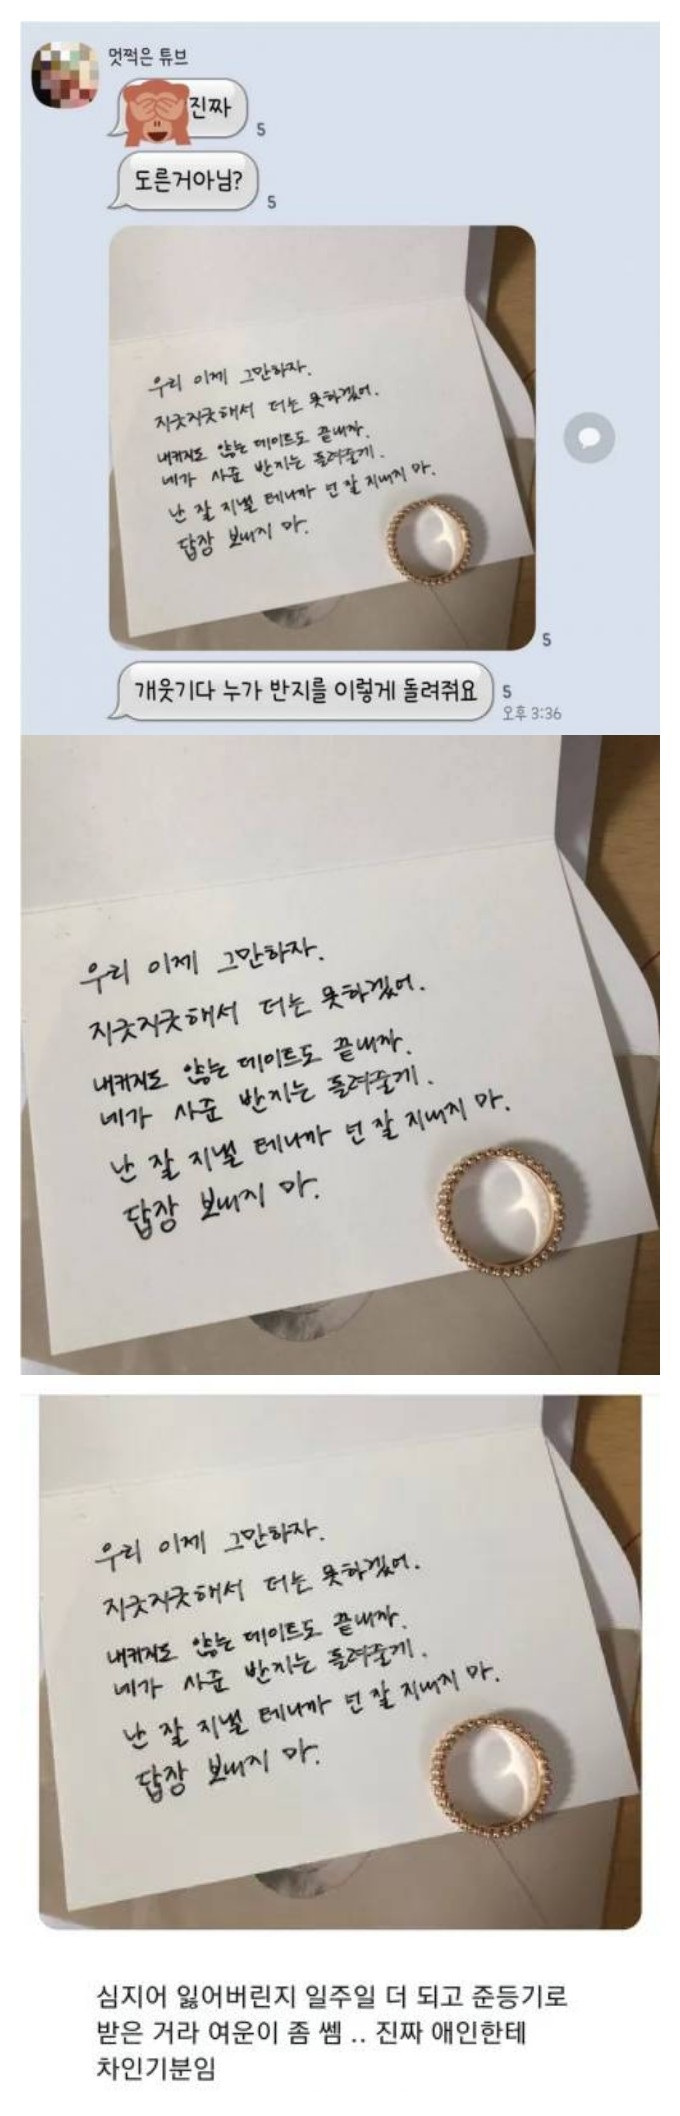 멋쩍은 튜브
진짜
5
도른거아님?
5
우리 이제 그만하자.
지긋지긋해서 더는 못하겠어.
내키지도 않는 데이트도 끝내자.
네가 사준 반지는 돌려줄게.
난 잘 지낼 테니까 넌 잘 지내지 마.
답장 보내지 마.
5
개웃기다 누가 반지를 이렇게 돌려줘요
5
오후 3:36
우리 이제 그만하자.
지긋지긋해서 더는 못하겠어.
내키지도 않는 데이트도 끝내자.
네가 사준 반지는 돌려줄게.
난 잘 지낼 테니까 넌 잘 지내지 마.
답장 보내지 마.
우리 이제 그만하자.
지긋지긋해서 더는 못하겠어.
내키지도 않는 데이트도 끝내자.
네가 사준 반지는 돌려줄게.
난 잘 지낼 테니까 넌 잘 지내지 마.
답장 보내지 마.
심지어 잃어버린지 일주일 더 되고 준등기로
받은 거라 여운이 좀 쎔 .. 진짜 애인한테
차인기분임